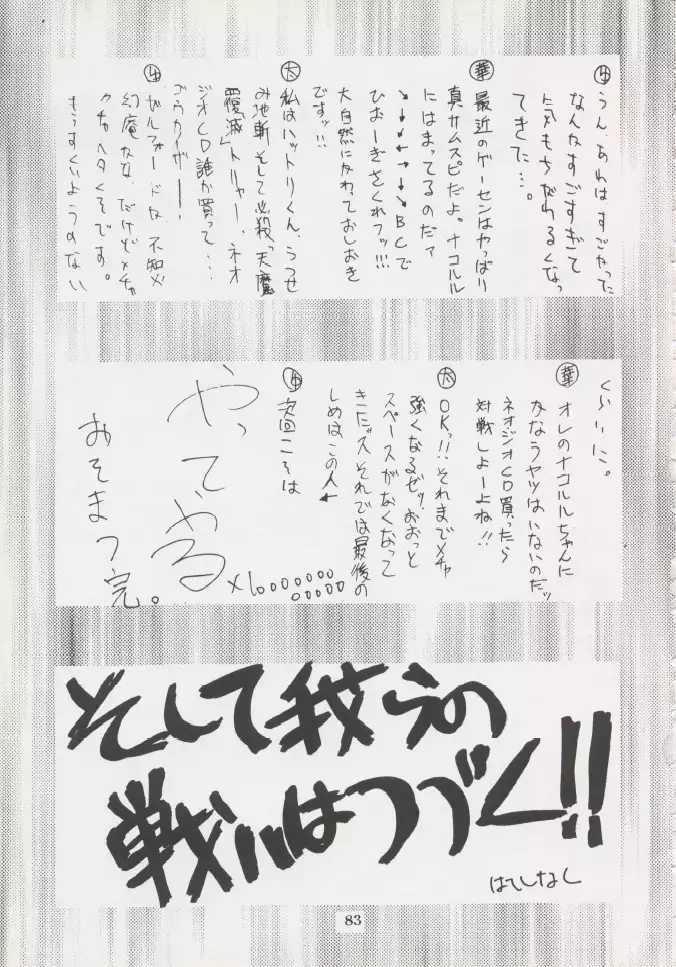 うん、あれはすごかった
なんかすごすぎて
気もちがわるくなっ
てきた…。
華 最近のゲーセンはやっぱり
真サムスピだよ。ナコルル
にはまってるのだァ
↘↓↙←→↘↓BCで
ひおーぎさくれフッ!!!
大自然にかわっておしおき
ですッ!!
大 私はハットリくん、うつせ
み地斬そして必殺っ天魔
覆滅」トリャー、ネオ
ジオCD誰か買って・・・
ゴウカイザー——!
ガルフォードな、不知火
幻庵だな、だけどメチャ
クチャヘタくそです。
もうすくいようのない
くらいに。
華 オレのナコルルちゃんに
かなうヤツはいないのだッ
ネオジオCD買ったら
対戦しよーよね!!
大 OKっ!!それまでメチャ
強くなるゼッ、おおっと
スペースがなくなって
きたッスそれでは最後の
しめはこの人←
次回こそは
やってやる
×1000000000000
おそまつ完。
そして我らの
戦いはつづく!!
はてしなく
83